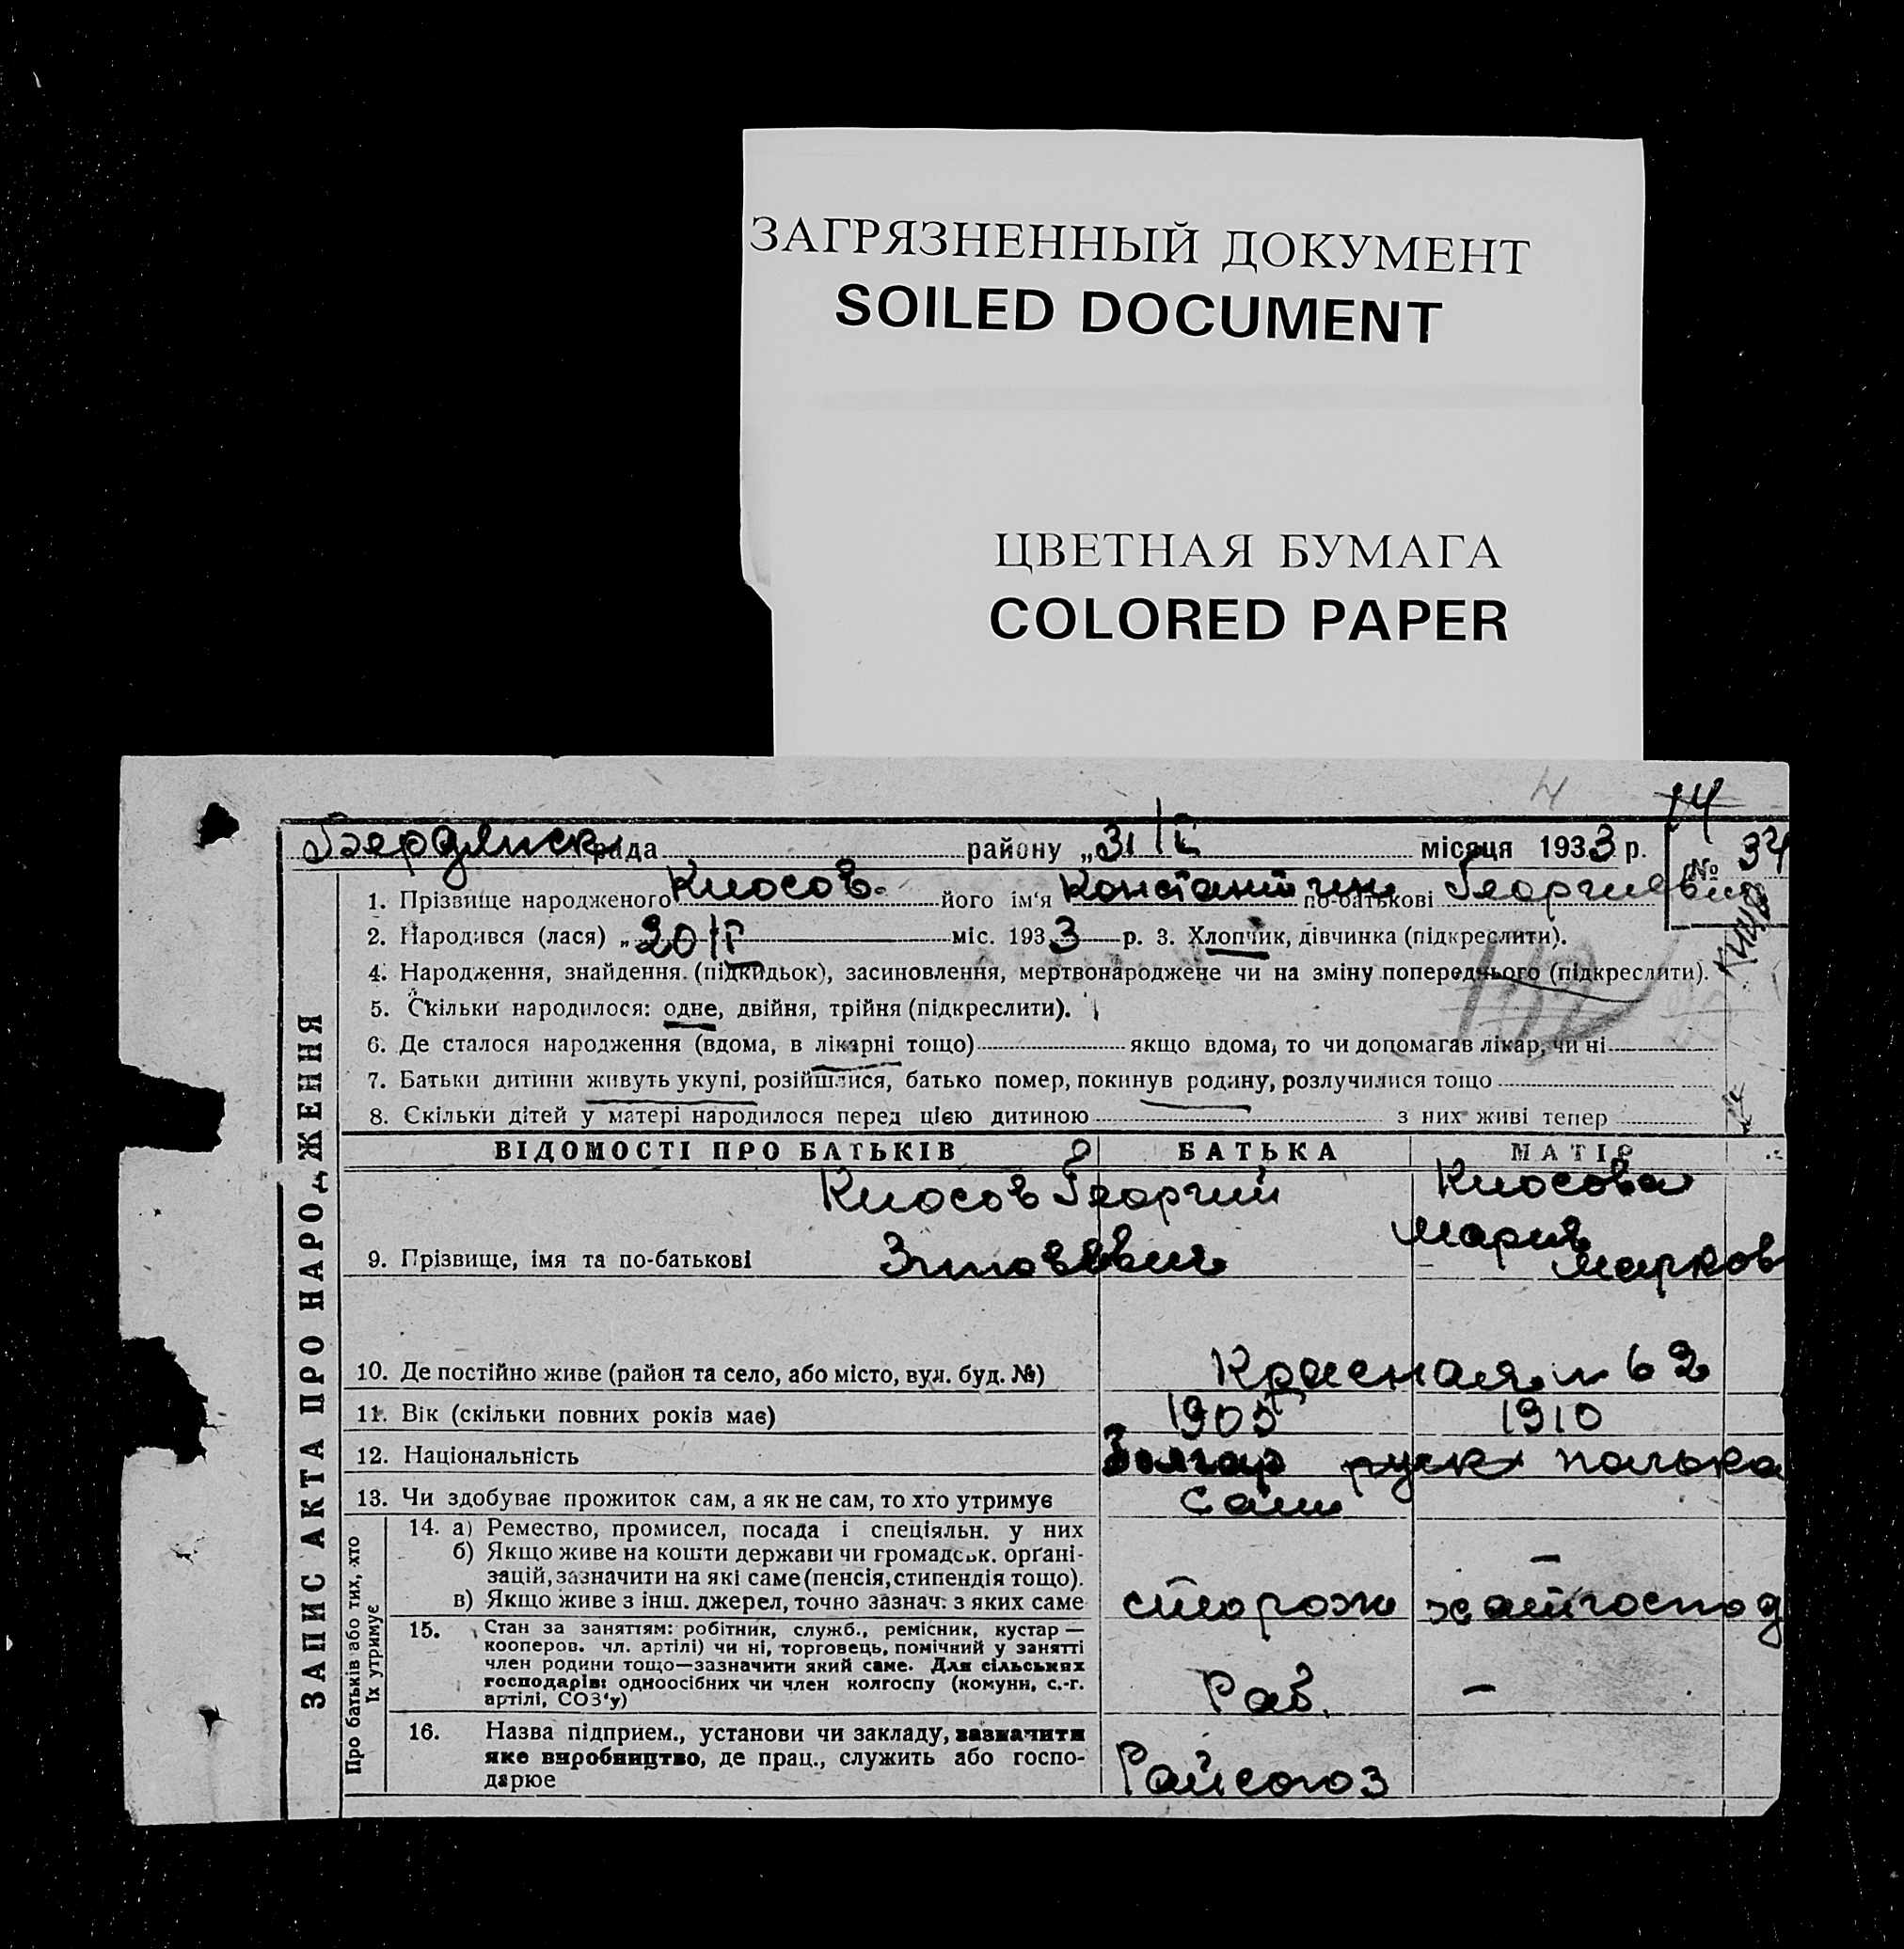 ЗАГРЯЗНЕННЫЙ ДОКУМЕНТ
SOILED DOCUMENT
ЦВЕТНАЯ БУМАГА
COLORED PAPER
74
Бердянск рада району „31/I місяця 1933 р. № 34
1. Прізвище народженого Кіосов його ім'я Константин по-батькові Георгиевич
2. Народився (лася) „20/I міс. 1933 р. 3. Хлопчик, дівчинка (підкреслити).
4. Народження, знайдення (підкидьок), засиновлення, мертвонароджене чи на зміну попереднього (підкреслити).
5. Скільки народилося: одне, двійня, трійня (підкреслити).
6. Де сталося народження (вдома, в лікарні тощо) якщо вдома, то чи допомагав лікар, чи ні
7. Батьки дитини живуть укупі, розійшлися, батько помер, покинув родину, розлучилися тощо
8. Скільки дітей у матері народилося перед цією дитиною з них живі тепер
ЗАПИС АКТА ПРО НАРОДЖЕННЯ
ВІДОМОСТІ ПРО БАТЬКІВ БАТЬКА МАТІР
Киосов Георгий Киосова
Мария
9. Прізвище, імя та по-батькові Марков
10. Де постійно живе (район та село, або місто, вул. буд. №) Красная 62
11. Вік (скільки повних років має) 1905 1910
12. Національність Болгар руск полька
13. Чи здобуває прожиток сам, а як не сам, то хто утримує сам
Про батьків або тих, хто їх утримує
14. а) Ремество, промисел, посада і спеціяльн. у них
б) Якщо живе на кошти держави чи громадськ. орґані- —
зацій, зазначити на які саме (пенсія, стипендія тощо).
в) Якщо живе з інш. джерел, точно зазнач. з яких саме сторож хатгоспод
15. Стан за заняттям: робітник, служб., ремісник, кустар —
кооперов. чл. артілі) чи ні, торговець, помічний у занятті
член родини тощо—зазначити який саме. Для сільських
господарів: одноосібних чи член колгоспу (комуни, с.-г.
артілі, СОЗ'у) Раб. —
16. Назва підприєм., установи чи закладу, зазначити
яке виробництво, де прац., служить або госпо-
дарює Райсоюз